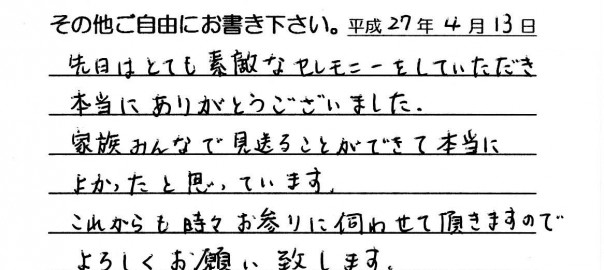 その他ご自由にお書き下さい。平成27年4月13日
先日はとても素敵なセレモニーをしていただき
本当にありがとうございました。
家族みんなで見送ることができて本当に
よかったと思っています。
これからも時々お参りに伺わせて頂きますので
よろしくお願い致します。